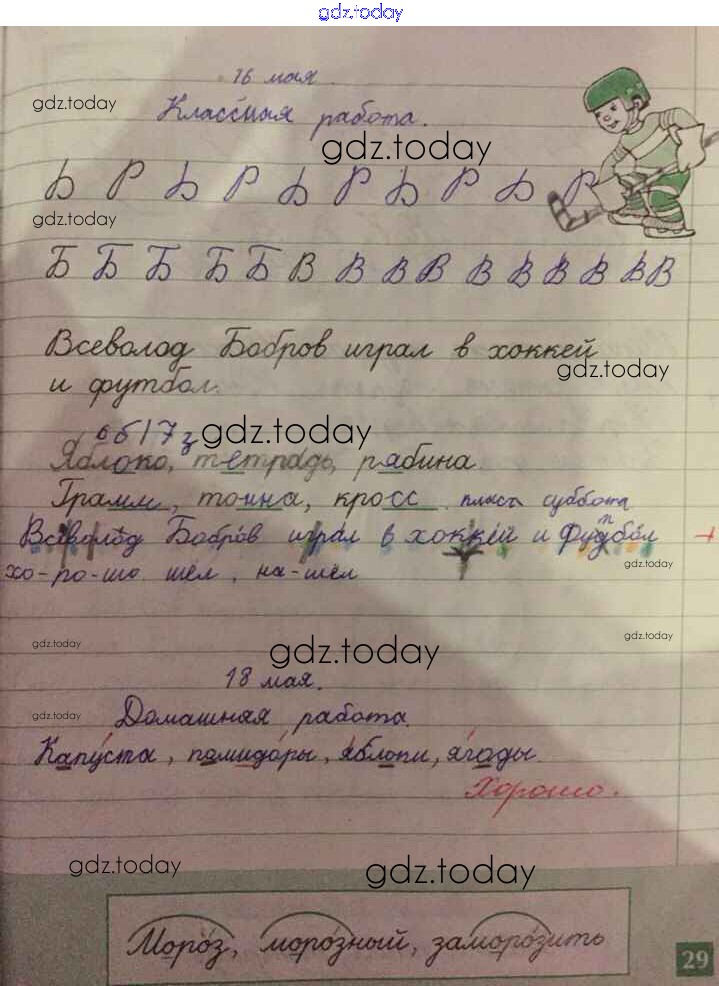 gdz.today
16 мая.
gdz.today
Классная работа.
gdz.today
Б Р Б Р Б Р Б Р Б Р
gdz.today
Б Б Б Б Б В В В В В В В В В В
Всеволод Бобров играл в хоккей
gdz.today
и футбол.
gdz.today
Яблоко, тетрадь, рябина.
Грамм, тонна, кросс суббота
Всеволод Бобров играл в хоккей и футбол
gdz.today
хо-ро-шо шёл, на-шёл
gdz.today
gdz.today
gdz.today
18 мая.
gdz.today
Домашная работа.
Капуста, помидоры, яблоки, ягоды.
Хорошо.
gdz.today
gdz.today
Мороз, морозный, заморозить
29